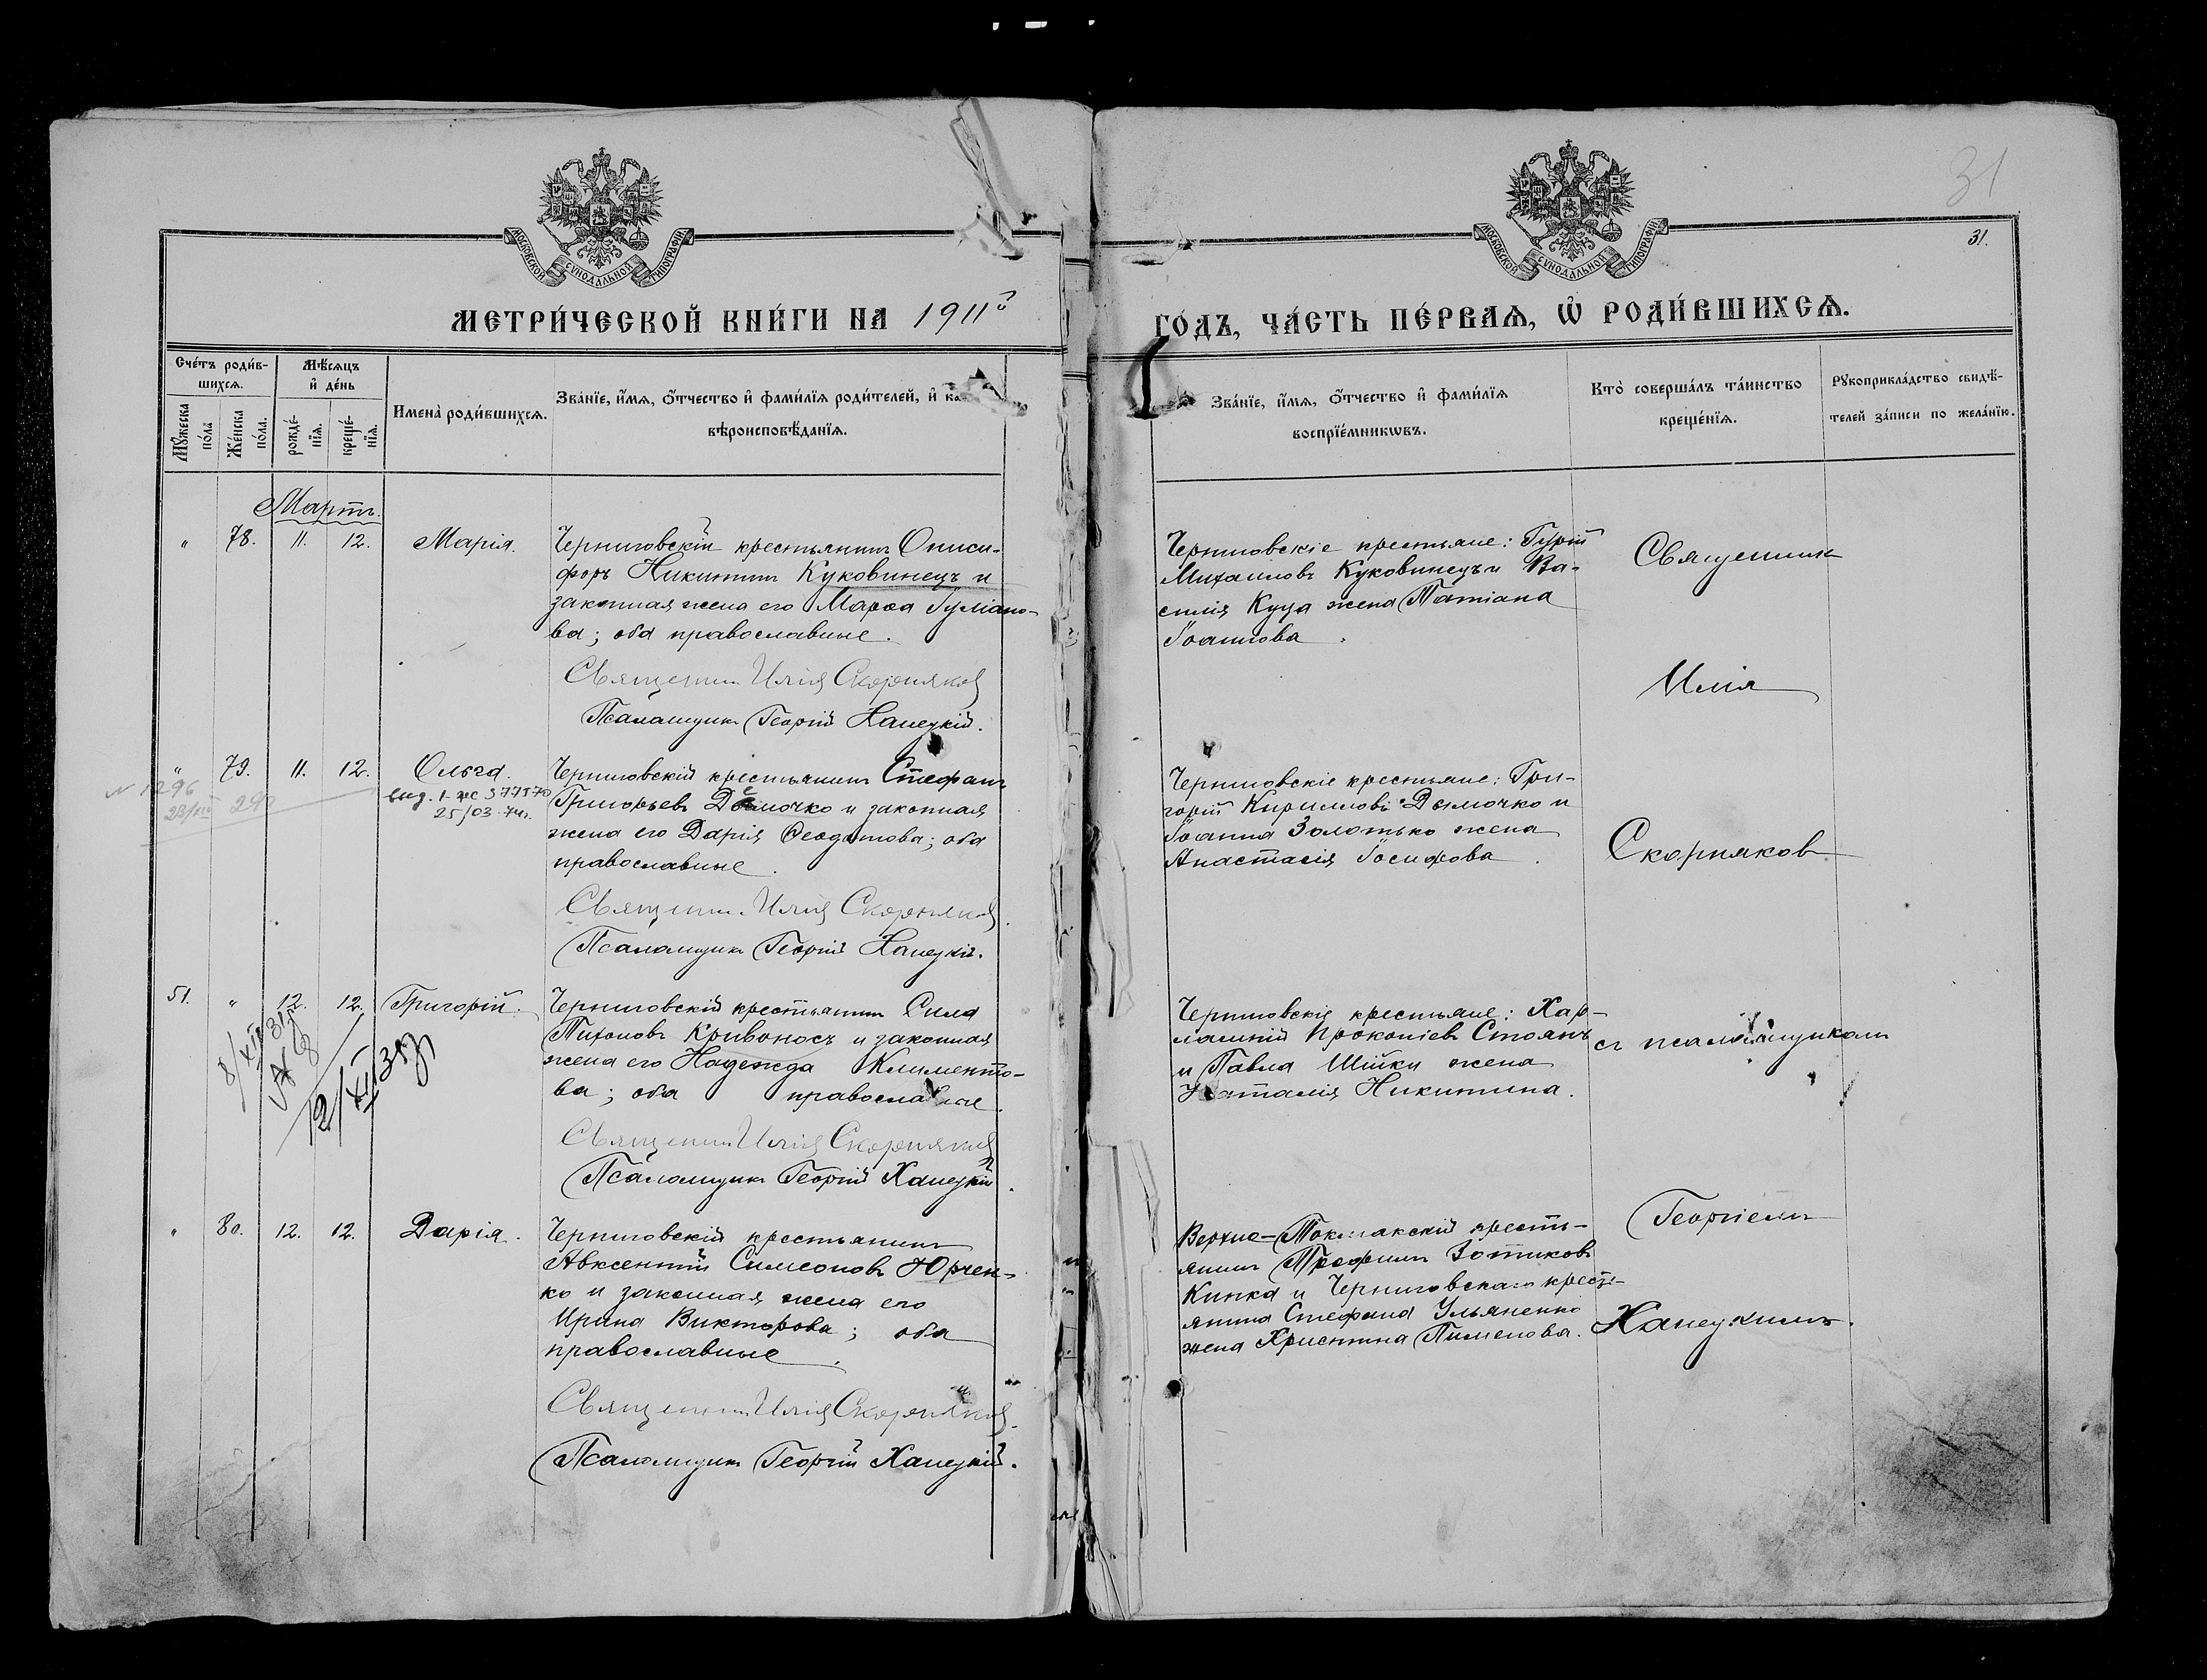 31
31.
МОСКОВСКОЙ СѴНОДАЛЬНОЙ ТИПОГРАФІИ
МОСКОВСКОЙ СѴНОДАЛЬНОЙ ТИПОГРАФІИ
МЕТРИ́ЧЕСКОЙ КНИ́ГИ НА 1911й
ГО́ДЪ, ЧА́СТЬ ПЕ́РВАѦ, Ѡ҆ РОДИ́ВШИХСѦ.
Сче́тъ роди́в-
шихсѧ.
Мѣ́сѧцъ
и҆ де́нь
Мꙋ́жеска
по́ла
Же́нска
по́ла.
рожде́-
нїѧ.
креще́-
нїѧ.
Имена̀ роди́вшихсѧ.
Зва́нїе, и҆́мѧ, ѻ҆́тчество и҆ фами́лїѧ роди́телей, и҆
вѣроисповѣ́данїѧ.
Зва́нїе, и҆́мѧ, ѻ҆́тчество и҆ фами́лїѧ
воспрїе́мникѡвъ.
Кто̀ соверша́лъ та́инство
креще́нїѧ.
Рꙋкоприкла́дство свидѣ́-
телей за́писи по жела́нїю.
Мартъ.
" 78. 11. 12. Марія.
Черниговскій крестьянинъ Ониси-
форъ Никитинъ Куковинецъ и
законная жена его Марѳа Іуліано-
ва; оба православные.
Священникъ Илія Скорняковъ
Псаломщикъ Георгій Ханецкій.
Черниговскіе крестьяне: Гурій
Михаиловъ Куковинецъ и Ва-
силія Куца жена Татіана
Іоаннова.
Священникъ
Илія
" 79. 11. 12. Ольга.
N 1296
выд. 1-жс 577570
25/03.74г.
Черниговскій крестьянинъ Стефанъ
Григорьевъ Демочко и законная
жена его Дарія Ѳеодотова; оба
православные.
Священникъ Илія Скорняковъ.
Псаломщикъ Георгій Ханецкій.
Черниговскіе крестьяне: Гри-
горій Кирилловъ Дымочко и
Іоанна Золотько жена
Анастасія Іосифова.
Скорняковъ
51. " 12. 12. Григорій.
Черниговскій крестьянинъ Сила
Тихоновъ Кривоносъ и законная
жена его Надежда Климент-
ова; оба православные.
Священникъ Илія Скорняковъ
Псаломщикъ Георгій Ханецкій.
Черниговскіе крестьяне: Хар-
лампій Прокопіевъ Стоянъ
и Павла Шійки жена
Наталія Никитина.
съ псаломщикомъ
" 80. 12. 12. Дарія.
Черниговскій крестьянинъ
Авксентій Симеоновъ Юрчен-
ко и законная жена его
Ирина Викторова; оба
православные.
Священникъ Илія Скорняковъ.
Псаломщикъ Георгій Ханецкій.
Верхне-Токмакскій кресть-
янинъ Трофимъ Зотиковъ
Кинка и Черниговскаго кресть-
янина Стефана Ульяненко
жена Христина Пименова.
Георгіемъ
Ханецкимъ.